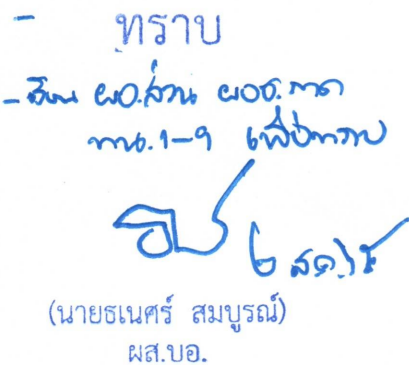 - ทราบ
- เรียน ผอ.ส่วน ผอช.ภาค
ทาน.1-9 เพื่อทราบ
๖ สค.
(นายธเนศร์ สมบูรณ์)
ผส.บอ.